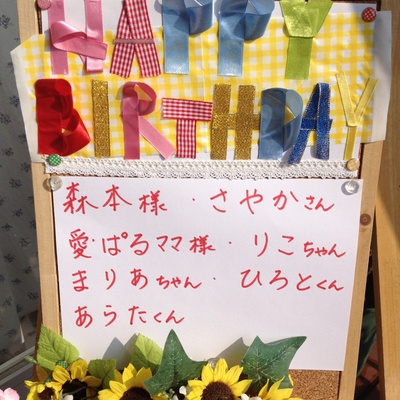 HAPPY
BIRTHDAY
森本様・さやかさん
愛・ぱるママ様・りこちゃん
まりあちゃん・ひろとくん
あらたくん